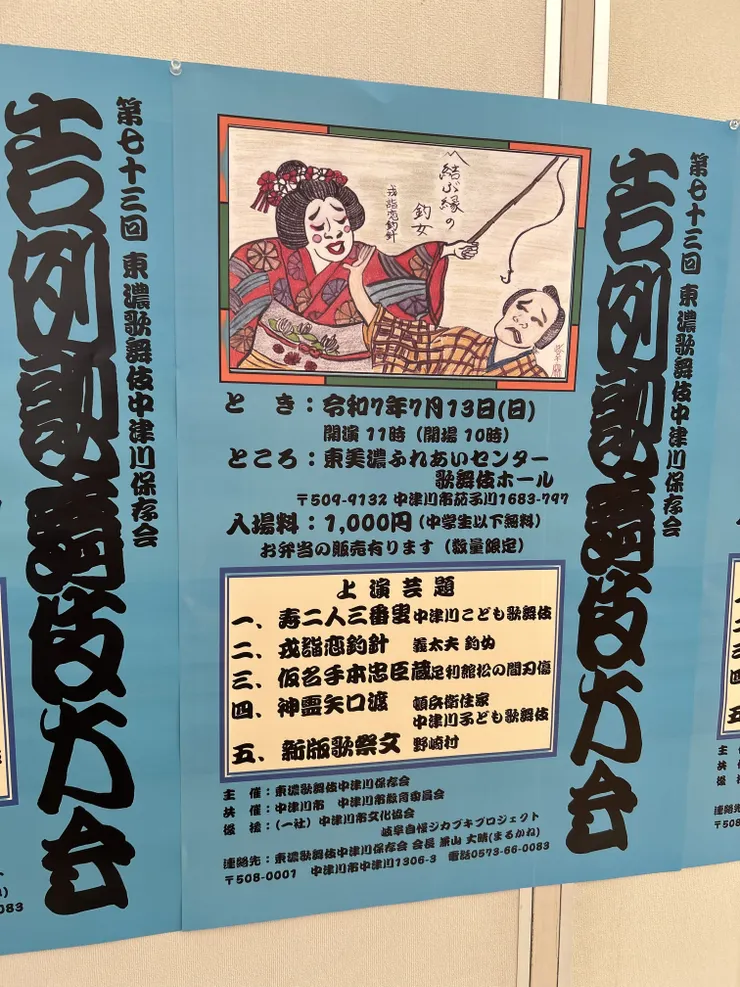 第七十三回 東濃歌舞伎中津川保存会
吉例歌舞伎大会
結ぶ縁の
釣女
戎詣恋釣針
とき：令和7年7月13日(日)
開演 11時（開場 10時）
ところ：東美濃ふれあいセンター
歌舞伎ホール
〒509-9132 中津川市茄子川1683-797
入場料：1,000円（中学生以下無料）
お弁当の販売有ります（数量限定）
上演芸題
一、寿二人三番叟 中津川こども歌舞伎
二、戎詣恋釣針 義太夫 釣女
三、仮名手本忠臣蔵 足利館松の間刃傷
四、神霊矢口渡 頓兵衛住家
中津川子ども歌舞伎
五、新版歌祭文 野崎村
主催：東濃歌舞伎中津川保存会
共催：中津川市 中津川市教育委員会
後援：（一社）中津川市文化協会
岐阜自慢ジカブキプロジェクト
連絡先：東濃歌舞伎中津川保存会 会長 大晴(まるかね)
〒508-0001 中津川市中津川1306-3 電話0573-66-0083
第七十三回 東濃歌舞伎中津川保存会
吉例歌舞伎大会